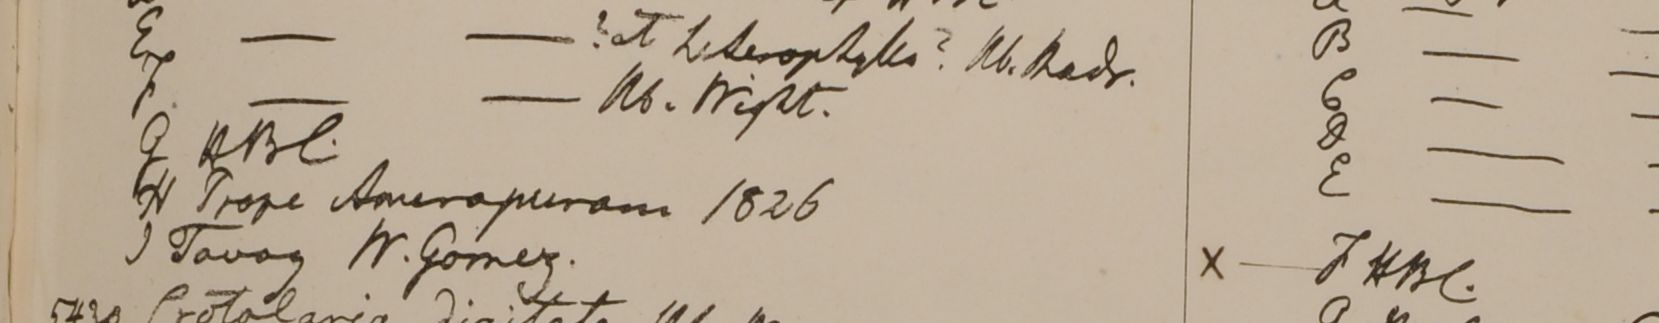 E — — ? et heterophylla? Hb. Madr.
F. — — Hb. Wight.
G HBC.
H Prope Amerapuram 1826
I Tavoy W. Gomez.
Crotolaria digitata Hb.
B —
C —
D —
E —
X — F HBC.
G